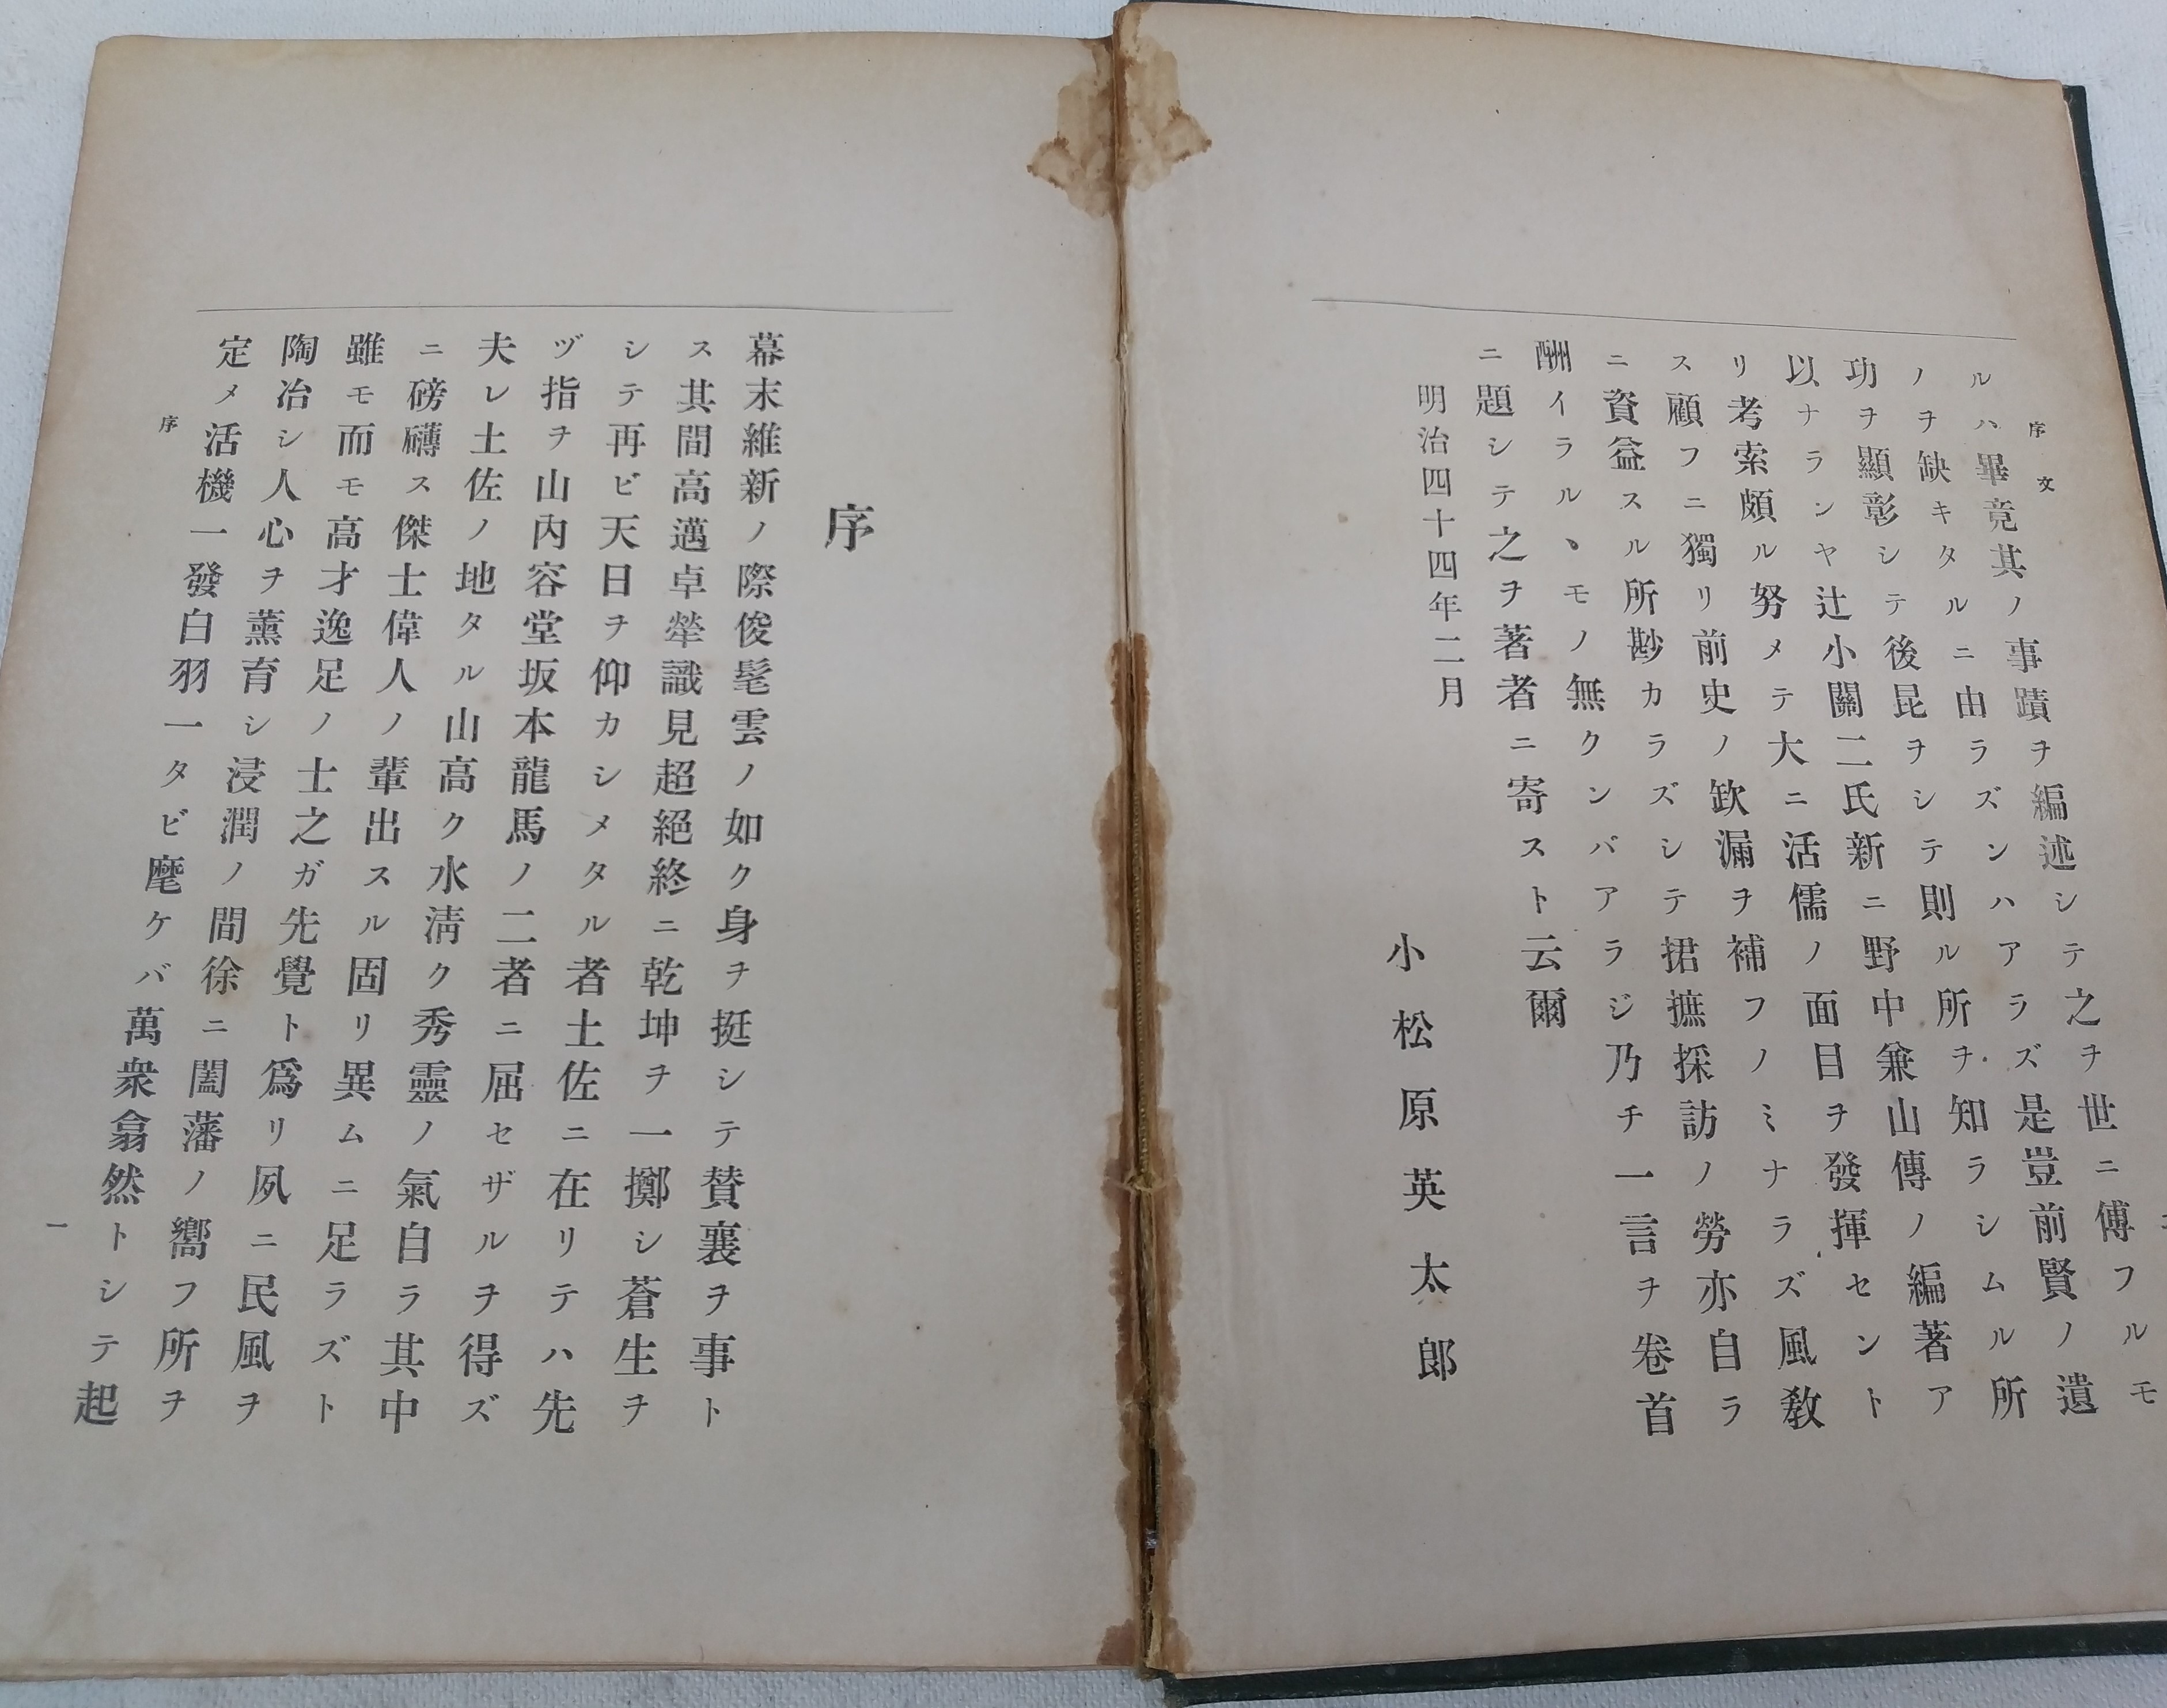 序文
ルハ畢竟其ノ事蹟ヲ編述シテ之ヲ世ニ傳フルモ
ノヲ缺キタルニ由ラズンハアラズ是豈前賢ノ遺
功ヲ顯彰シテ後昆ヲシテ則ル所ヲ知ラシムル所
以ナランヤ辻小關二氏新ニ野中兼山傳ノ編著ア
リ考索頗ル努メテ大ニ活儒ノ面目ヲ發揮セント
ス顧フニ獨リ前史ノ欽漏ヲ補フノミナラズ風敎
ニ資益スル所尠カラズシテ捃摭採訪ノ勞亦自ラ
酬イラルヽモノ無クンバアラジ乃チ一言ヲ卷首
ニ題シテ之ヲ著者ニ寄スト云爾
明治四十四年二月
小松原英太郎
序
幕末維新ノ際俊髦雲ノ如ク身ヲ挺シテ賛襄ヲ事ト
ス其間高邁卓犖識見超絕終ニ乾坤ヲ一擲シ蒼生ヲ
シテ再ビ天日ヲ仰カシメタル者土佐ニ在リテハ先
ヅ指ヲ山內容堂坂本龍馬ノ二者ニ屈セザルヲ得ズ
夫レ土佐ノ地タル山高ク水淸ク秀靈ノ氣自ラ其中
ニ磅礴ス傑士偉人ノ輩出スル固リ異ムニ足ラズト
雖モ而モ高才逸足ノ士之ガ先覺ト爲リ夙ニ民風ヲ
陶冶シ人心ヲ薰育シ浸潤ノ間徐ニ闔藩ノ嚮フ所ヲ
定メ活機一發白羽一タビ麾ケバ萬衆翕然トシテ起
序
一